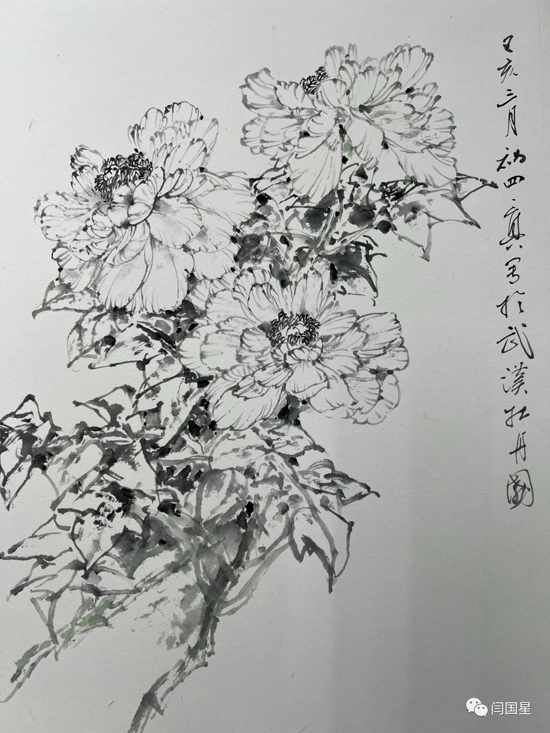 己亥三月初四写於武漢牡丹園
闫国星